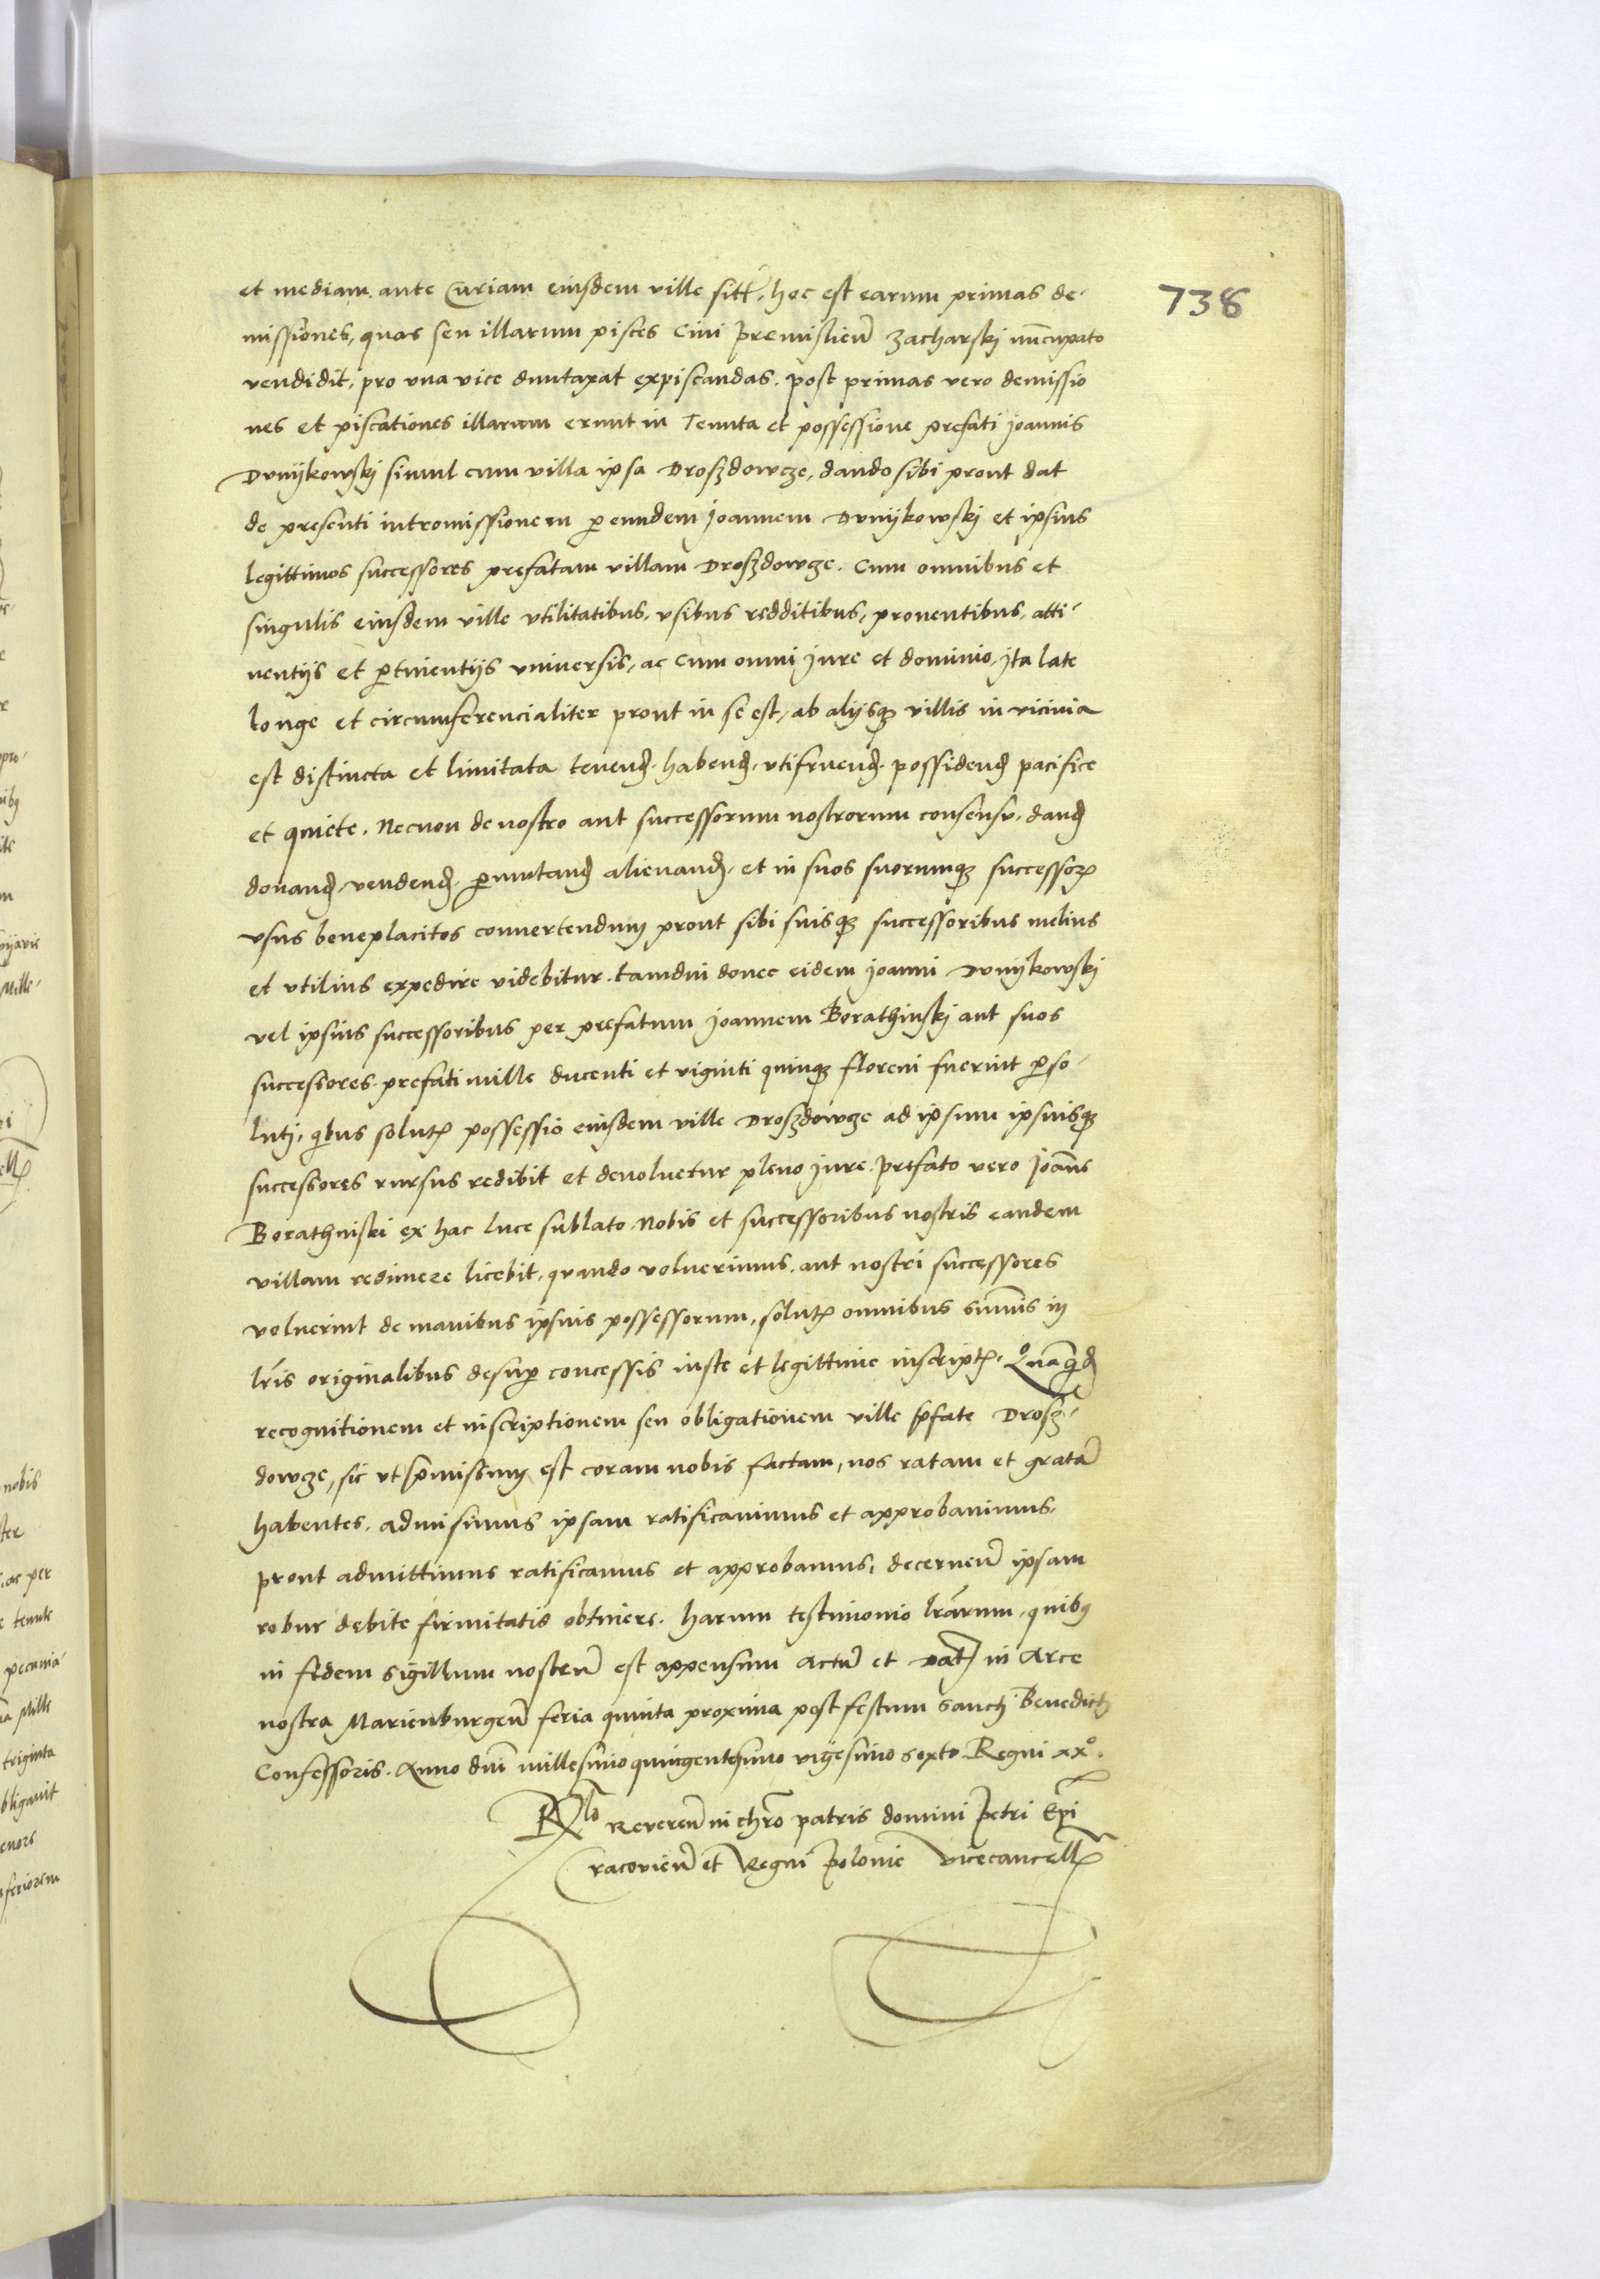 738
et mediam ante Curiam eiusdem ville sitt, hoc est earum primas de-
missiones, quas seu illarum pisces Ciui premislien̄ Zacharski nūcupato
vendidit, pro vna vice duntaxat expiscandas. post primas vero demissio
nes et piscationes illarum erunt in Tenuta et possessione prefati joannis
Dvnijkowskj simul cum villa ipsa Droszdowcze, dando sibi prout dat
de presenti intromissionem ꝑ eundem joannem Dvnijkowskj et ipsius
legittimos successores prefatam villam Droszdowcze. Cum omnibus et
singulis eiusdem ville vtilitatibus, vsibus redditibus, prouentibus, atti-
nentijs et ꝑtinentijs vniuersis, ac cum omni jure et dominio, jta late
longe et circumferencialiter prout in se est, ab alijsqꝫ villis in vicinia
est distincta et limitata tenend̄. habend̄. vtifruend̄. possidend̄ pacifice
et quiete. Necnon de nostro aut successorum nostrorum consensu, dand̄
donand̄, vendend̄, ꝑmutand̄ alienand̄, et in suos suorumqꝫ successoꝝ
vsus beneplacitos conuertendum prout sibi suisqꝫ successoribus melius
et vtilius expedire videbitur. tamdiu donec eidem joanni Dvnijkowskj
vel ipsius successoribus per prefatum joannem Borathinskj aut suos
successores prefati mille ducenti et viginti quinqꝫ floreni fuerint ꝑso-
lutj, qbus solutꝭ possessio eiusdem ville Droszdowcze ad ipsum ipsiusqꝫ
successores rursus redibit et deuoluetur pleno jure. prefato vero Joāne
Borathinski ex hac luce sublato Nobis et successoribus nostris eandem
villam redimere licebit, quando voluerimus, aut nostri successores
voluerint de manibus ipsius possessorum, solutꝭ omnibus sum̄is in
lr̄is originalibus desuꝑ concessis iuste et legittime inscriptꝭ. Quāqd̄
recognitionem et inscriptionem seu obligationem ville p̄fate Drosz-
dowcze, sic vt p̄missum est coram nobis factam, nos ratam et gratā
habentes, admisimus ipsam ratificauimus et approbauimus,
prout admittimus ratificamus et approbamus, decernen̄ ipsam
robur debite firmitatis obtinere. harum testimonio lrārum, quibꝰ
in fidem sigillum nostrū est appensum Actū et Dat̄ in Arce
nostra Marienburgen̄ feria quinta proxima post festum sanctj Benedictj
Confessoris. Anno dn̄i millesimo quingentesimo vigesimo sexto Regni xxº.
Rl̄o Reueren̄ in chrō patris domini petri Ep̄i
Cracovien̄ et Regni polonie Vicecancellꝝ